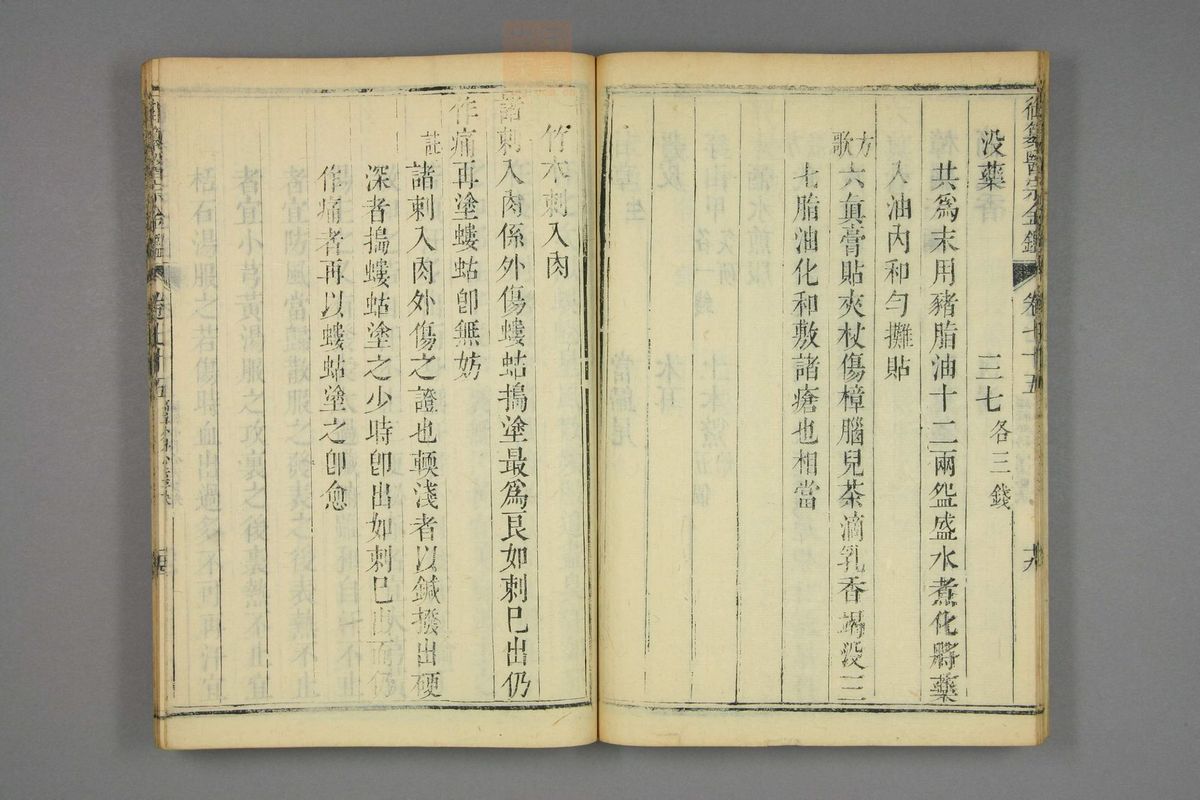 御纂醫宗金鑑 卷七十五
没藥 三七各三錢
共爲末用豬脂油十二兩盌盛水煮化將藥
入油內和勻攤貼
方歌 六眞膏貼夾杖傷樟腦兒茶滴乳香竭没三
七脂油化和敷諸瘡也相當
竹木刺入肉
諸刺入肉係外傷螻蛄搗塗最爲良如刺已出仍
作痛再塗螻蛄卽無妨
註 諸刺入肉外傷之證也輭淺者以鍼撥出硬
深者搗螻蛄塗之少時卽出如刺已出而仍
作痛者再以螻蛄塗之卽愈
御纂醫宗金鑑 卷七十五